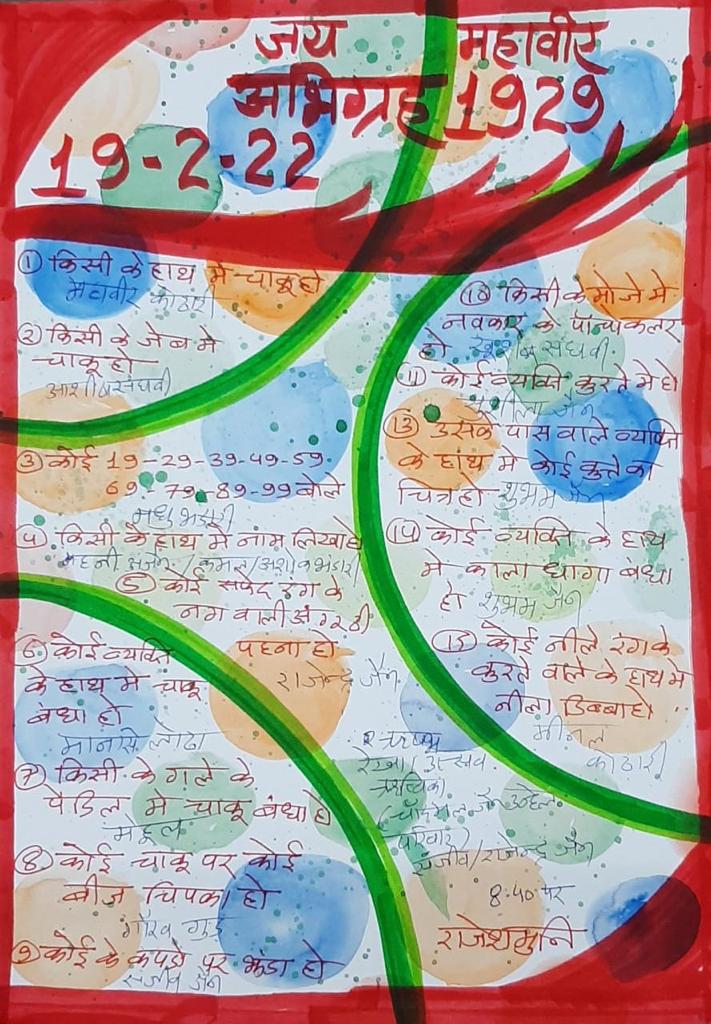 जय महावीर
अभिग्रह 1929
19-2-22
① किसी के हाथ मे चाकू हो
महावीर कोठारी
② किसी के जेब मे
चाकू हो
आशीष संघवी
③ कोई 19-29-39-49-59
69-79-89-99 बोले
मधु भंडारी
④ किसी के हाथ मे नाम लिखा हो
कमल/अशोक भंडारी
⑤ कोई सफेद रंग के
नग वाली अंगूठी
पहना हो
राजेन्द्र जैन
⑥ कोई व्यक्ति
के हाथ मे चाकू
बंधा हो
मानसी लोढा
⑦ किसी के गले के
पेंडिल मे चाकू बंधा हो
मेहूल
⑧ कोई चाकू पर कोई
बीज चिपका हो
गौरव
⑨ कोई के कपडो पर झंडा हो
संजीव जैन
⑩ किसी के मोजे मे
नवकार के पांचो कलर
हो संघवी
⑪ कोई व्यक्ति कुरते मे हो
सुशीला जैन
⑬ उसके पास वाले व्यक्ति
के हाथ मे कोई कुत्ते का
चित्र हो शुभम जैन
⑭ कोई व्यक्ति के हाथ
मे काला धागा बंधा
हो शुभम जैन
⑮ कोई नीले रंग के
कुरते वाले के हाथ मे
नीला डिब्बा हो
मीनल
कोठारी
रेखा/उत्सव
परिवार)
संजीव/राजेन्द्र जैन
8:40 पर
राजेशमुनि